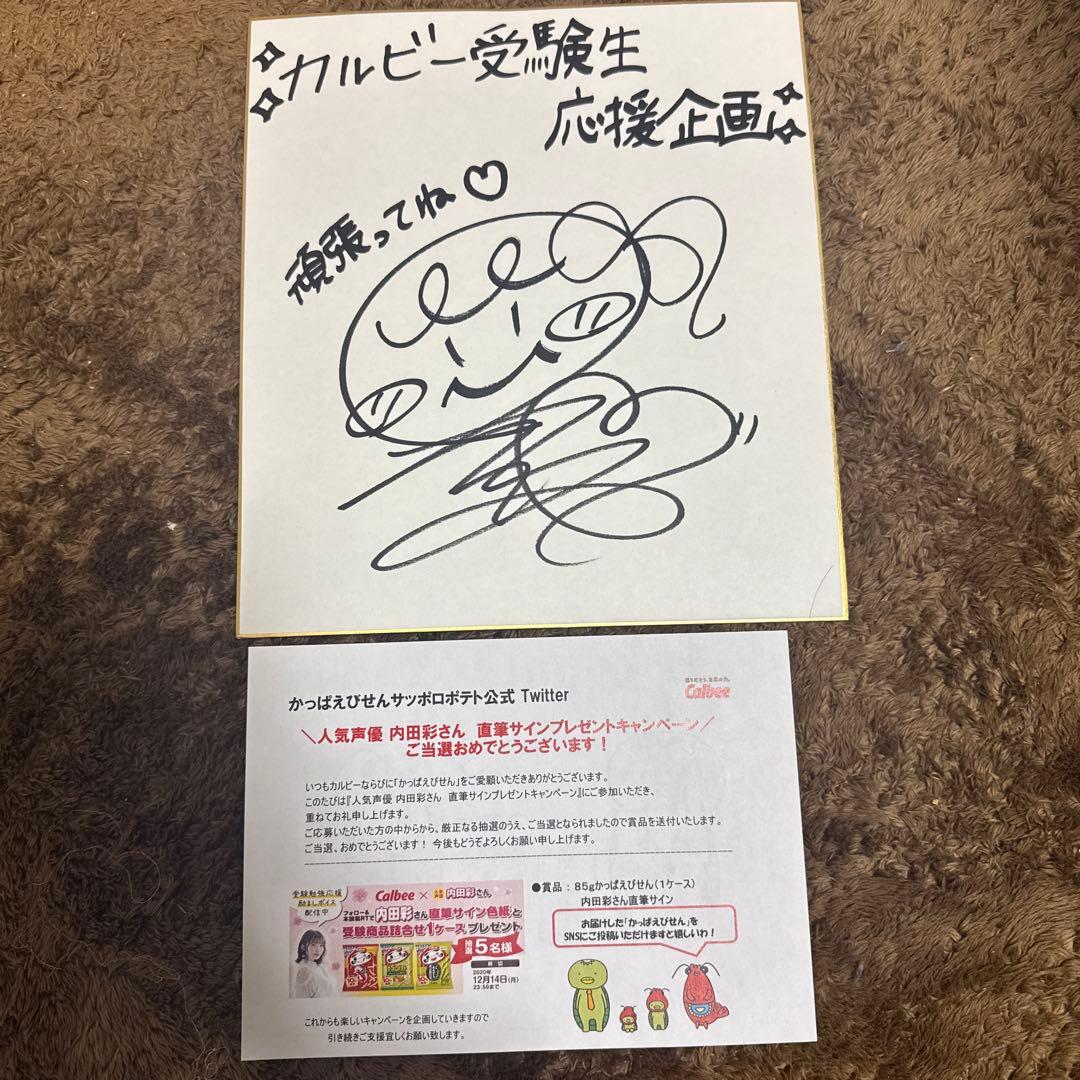 カルビー受験生
応援企画
頑張ってね♡
かっぱえびせんサッポロポテト公式 Twitter
Calbee
＼人気声優 内田彩さん 直筆サインプレゼントキャンペーン／
ご当選おめでとうございます！
いつもカルビーならびに「かっぱえびせん」をご愛顧いただきありがとうございます。
このたびは『人気声優 内田彩さん 直筆サインプレゼントキャンペーン』にご参加いただき、
重ねてお礼申し上げます。
ご応募いただいた方の中からから、厳正なる抽選のうえ、ご当選となられましたので賞品を送付いたします。
ご当選、おめでとうございます！ 今後もどうぞよろしくお願い申し上げます。
受験勉強応援
励ましボイス
配信中
Calbee × 人気声優 内田彩さん
フォロー＆
本投稿RTで 内田彩さん直筆サイン色紙と
受験商品詰合せ1ケースプレゼント
抽選
5名様
締切
2020年
12月14日(月)
23:59まで
●賞品 : 85gかっぱえびせん(1ケース)
内田彩さん直筆サイン
お届けした「かっぱえびせん」を
SNSにご投稿いただけますと嬉しいわ！
これからも楽しいキャンペーンを企画していきますので
引き続きご支援宜しくお願い致します。